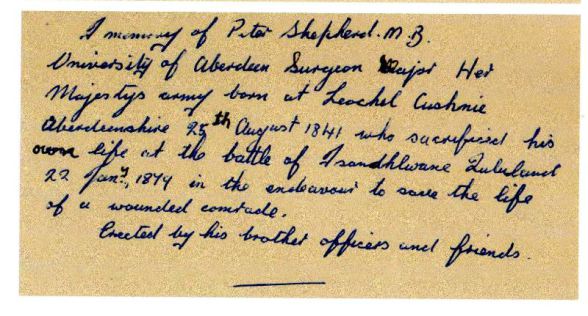 I memory of Peter Shepherd. M.B.
University of Aberdeen Surgeon Major Her
Majestys army born at Leochel Cushnie
Aberdeenshire 25th August 1841 who sacrificed his
own life at the battle of Isandhlwane Zululand
22 Jany, 1879 in the endeavour to save the life
of a wounded comrade.
Erected by his brother officers and friends.